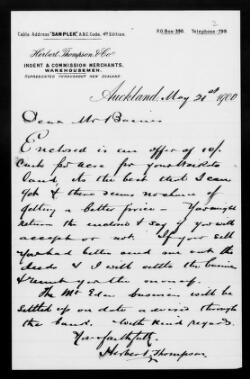 Cable Address "SAMPLER" A.B.C. Code, 4th Edition.
P.O. Box 390. Telephone 790.
2
Herbert Thompson & Co.
INDENT & COMMISSION MERCHANTS,
WAREHOUSEMEN.
REPRESENTED THROUGHOUT NEW ZEALAND
Auckland, May 21st 1900
Dear Mr
Enclosed is an offer of 10/.
Cash for acre for your Waikato
land. Its the best that I can
get & there seems no chance of
getting a better price - You might
return the enclosed & say if you will
accept or not. If you sell
You had better send me out the
deeds & I will settle the business
& remit you the money.
The Mt Eden business will be
settled up on date advised through
the Bank. With kind regards
Yrs faithfully
Herbert Thompson